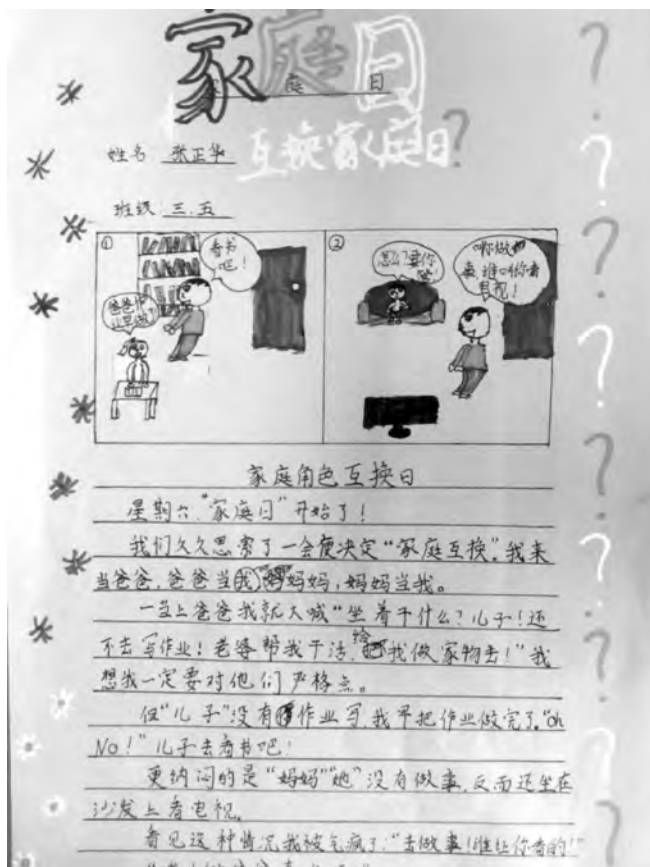 家庭日
庭 日
互换家庭日
姓名 张正华
班级 三.五
①
看书
吧!
爸爸
②
叫你做
事,谁叫你看
电视!
家庭角色互换日
星期六,“家庭日”开始了!
我们久久思索了一会便决定“家庭互换”。我来
当爸爸,爸爸当妈妈,妈妈当我。
一当上爸爸我就大喊“坐着干什么?儿子!还
不去写作业!老婆帮我干活,给我做家物去!”我
想我一定要对他们严格点。
但“儿子”没有作业写,我早把作业做完了。“oh
No!”儿子去看书吧!
更纳闷的是“妈妈”“她”没有做事,反而还坐在
沙发上看电视。
看见这种情况我被气疯了:“去做事!谁让你看的!”